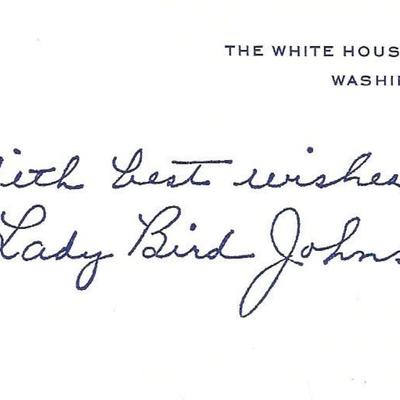 THE WHITE HOUS
WASHI
ith best wishes
Lady Bird Johns